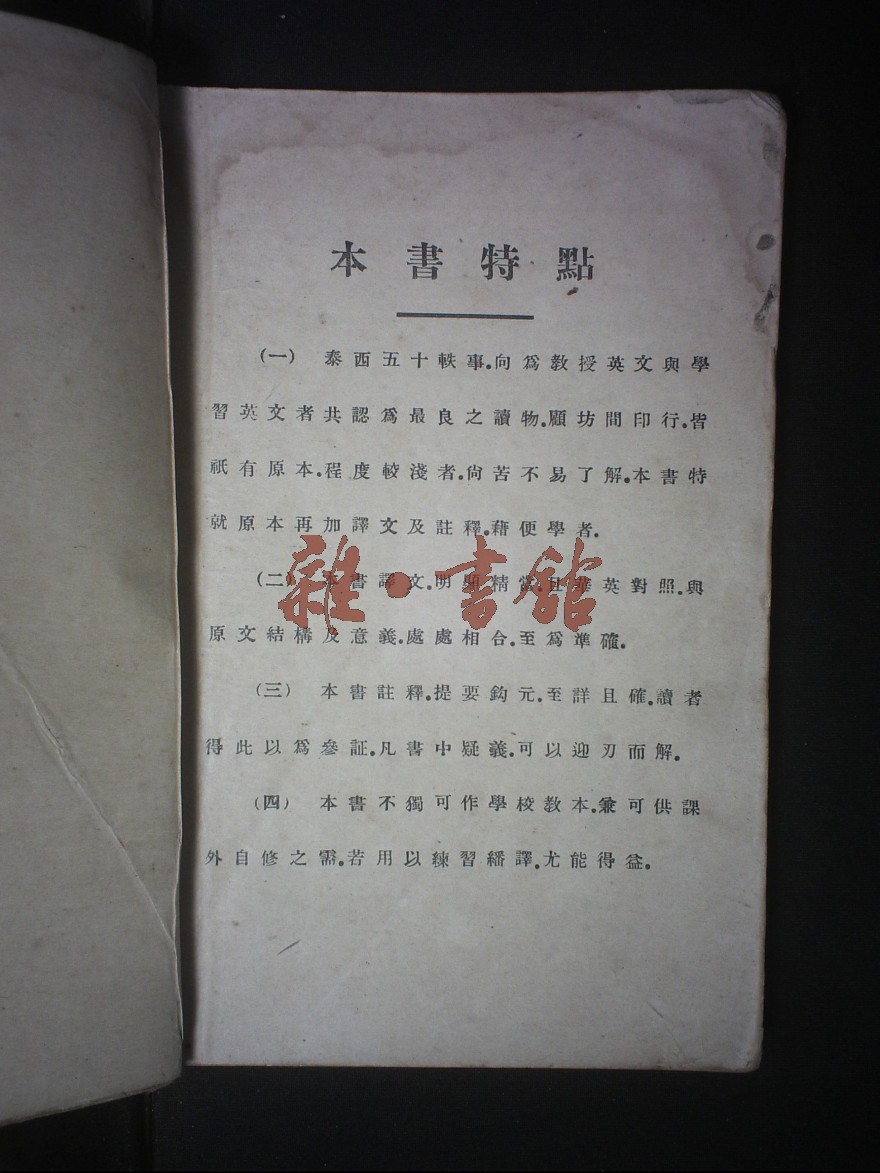 本書特點
(一) 泰西五十軼事.向爲教授英文與學
習英文者共認爲最良之讀物.顧坊間印行.皆
祇有原本.程度較淺者.尙苦不易了解.本書特
就原本再加譯文及註釋.藉便學者.
(二) 本書譯文.明顯精當.且華英對照.與
原文結構及意義.處處相合.至爲準確.
(三) 本書註釋.提要鈎元.至詳且確.讀者
得此以爲參証.凡書中疑義.可以迎刃而解.
(四) 本書不獨可作學校教本.兼可供課
外自修之需.若用以練習繙譯.尤能得益.
雜·書館